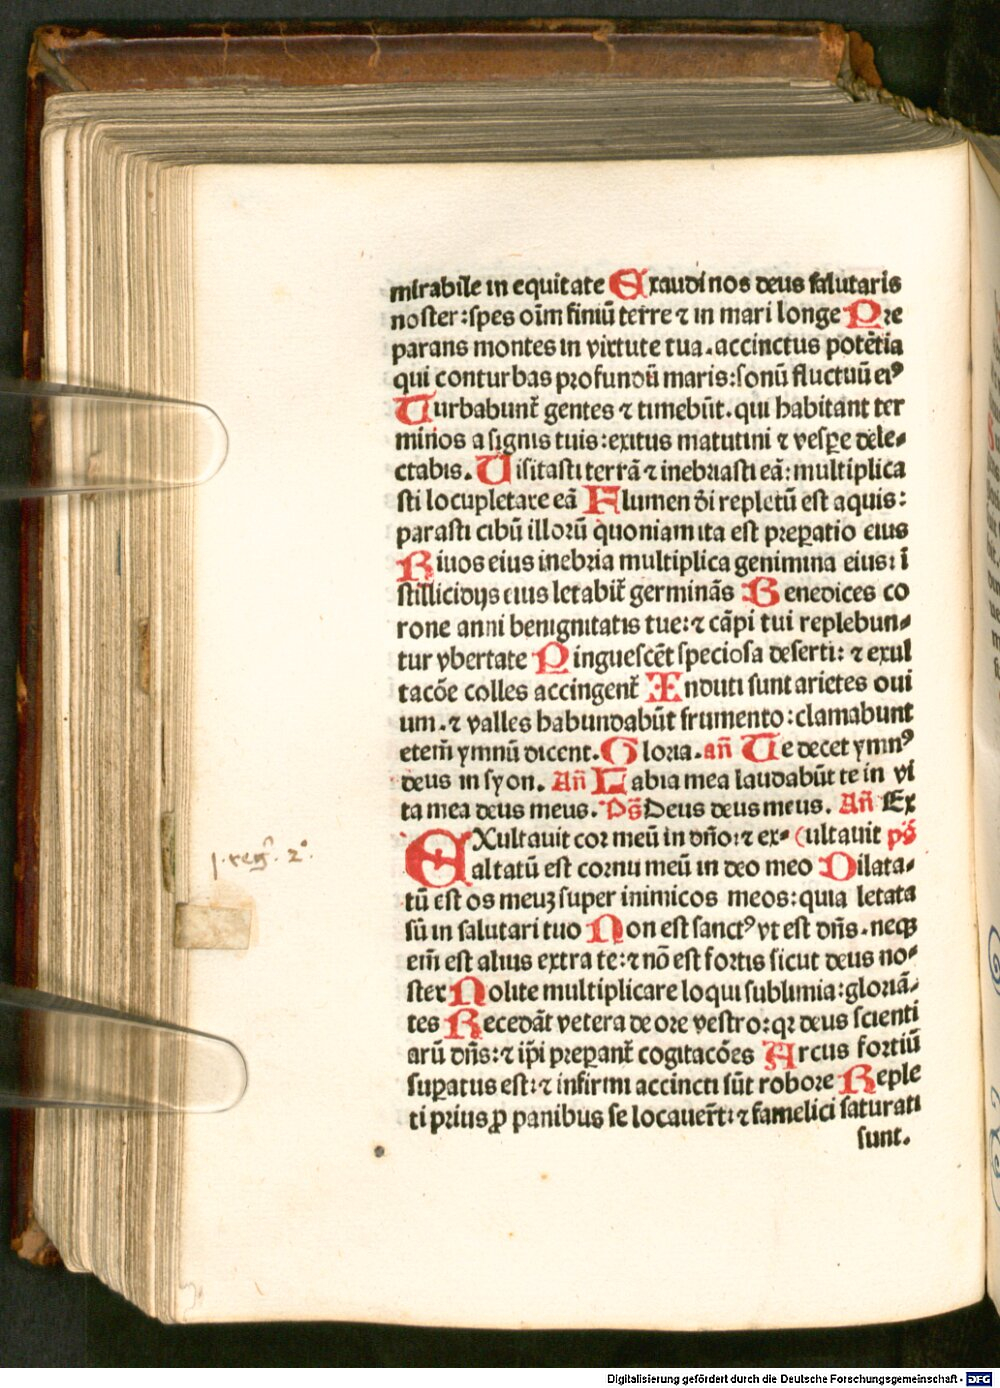 mirabile in equitate Exaudi nos deus salutaris
noster: spes oīm finiū terre ⁊ in mari longe Pre
parans montes in virtute tua. accinctus potētia
qui conturbas profundū maris: sonū fluctuū eiꝰ
Turbabunt̄ gentes ⁊ timebūt. qui habitant ter
minos a signis tuis: exitus matutini ⁊ vesꝑe dele-
ctabis. Uisitasti terrā ⁊ inebriasti eā: multiplica
sti locupletare eā Flumen dī repletū est aquis:
parasti cibū illorū quoniam ita est preꝑatio eius
Riuos eius inebria multiplica genimina eius: ī
stillicidijs eius letabit̄ germinās Benedices co
rone anni benignitatis tue: ⁊ cāpi tui replebun-
tur vbertate Pinguescēt speciosa deserti: ⁊ exul
tacōe colles accingent̄ Induti sunt arietes oui
um. ⁊ valles habundabūt frumento: clamabunt
etem̄ ymnū dicent. Gloria. an̄ Te decet ymnꝰ
deus in syon. An̄ Labia mea laudabūt te in vi
ta mea deus meus. Ps̄ Deus deus meus. An̄ Ex
EXultauit cor meū in dn̄o: ⁊ ex- (ultauit ps̄
altatū est cornu meū in deo meo Dilata-
tū est os meuꝫ super inimicos meos: quia letata
sū in salutari tuo Non est sanctꝰ vt est dn̄s. neqꝫ
em̄ est alius extra te: ⁊ nō est fortis sicut deus no-
ster Nolite multiplicare loqui sublimia: gloriā-
tes Recedāt vetera de ore vestro: qꝛ deus scienti
arū dn̄s: ⁊ ip̄i preꝑant̄ cogitacōes Arcus fortiū
suꝑatus est: ⁊ infirmi accincti sūt robore Reple
ti prius ꝓ panibus se locauer̄t: ⁊ famelici saturati
sunt.
1. reg. 2º.
Digitalisierung gefördert durch die Deutsche Forschungsgemeinschaft - DFG